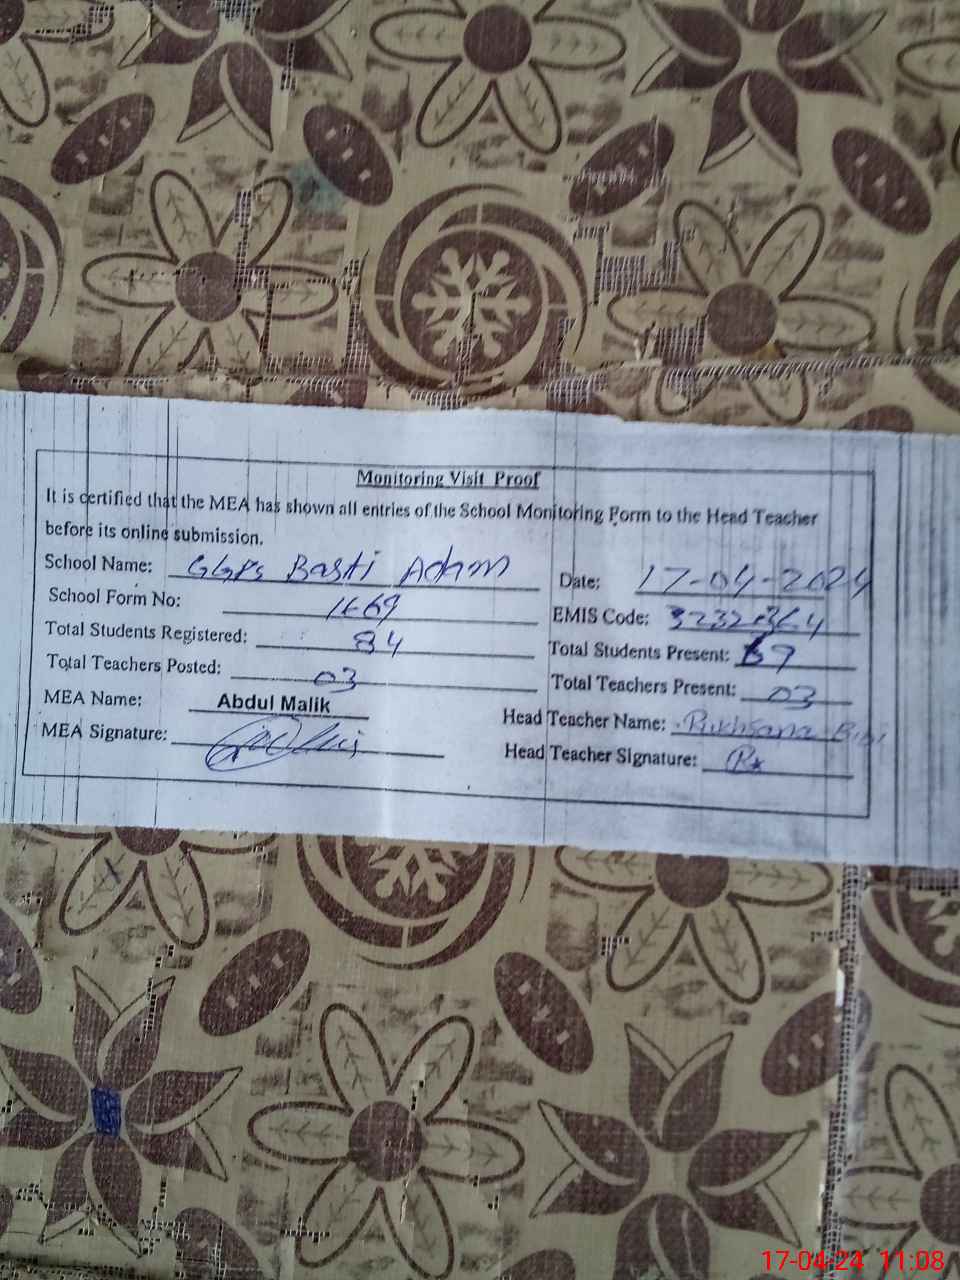 Monitoring Visit Proof
It is certified that the MEA has shown all entries of the School Monitoring Form to the Head Teacher
before its online submission.
School Name: GGPS Basti Adam
Date: 17-04-2024
School Form No: 1669
EMIS Code:
Total Students Registered: 84
Total Students Present:
Total Teachers Posted: 03
Total Teachers Present: 03
MEA Name: Abdul Malik
Head Teacher Name: Rukhsana Bibi
MEA Signature:
Head Teacher Signature:
17-04-24 11:08